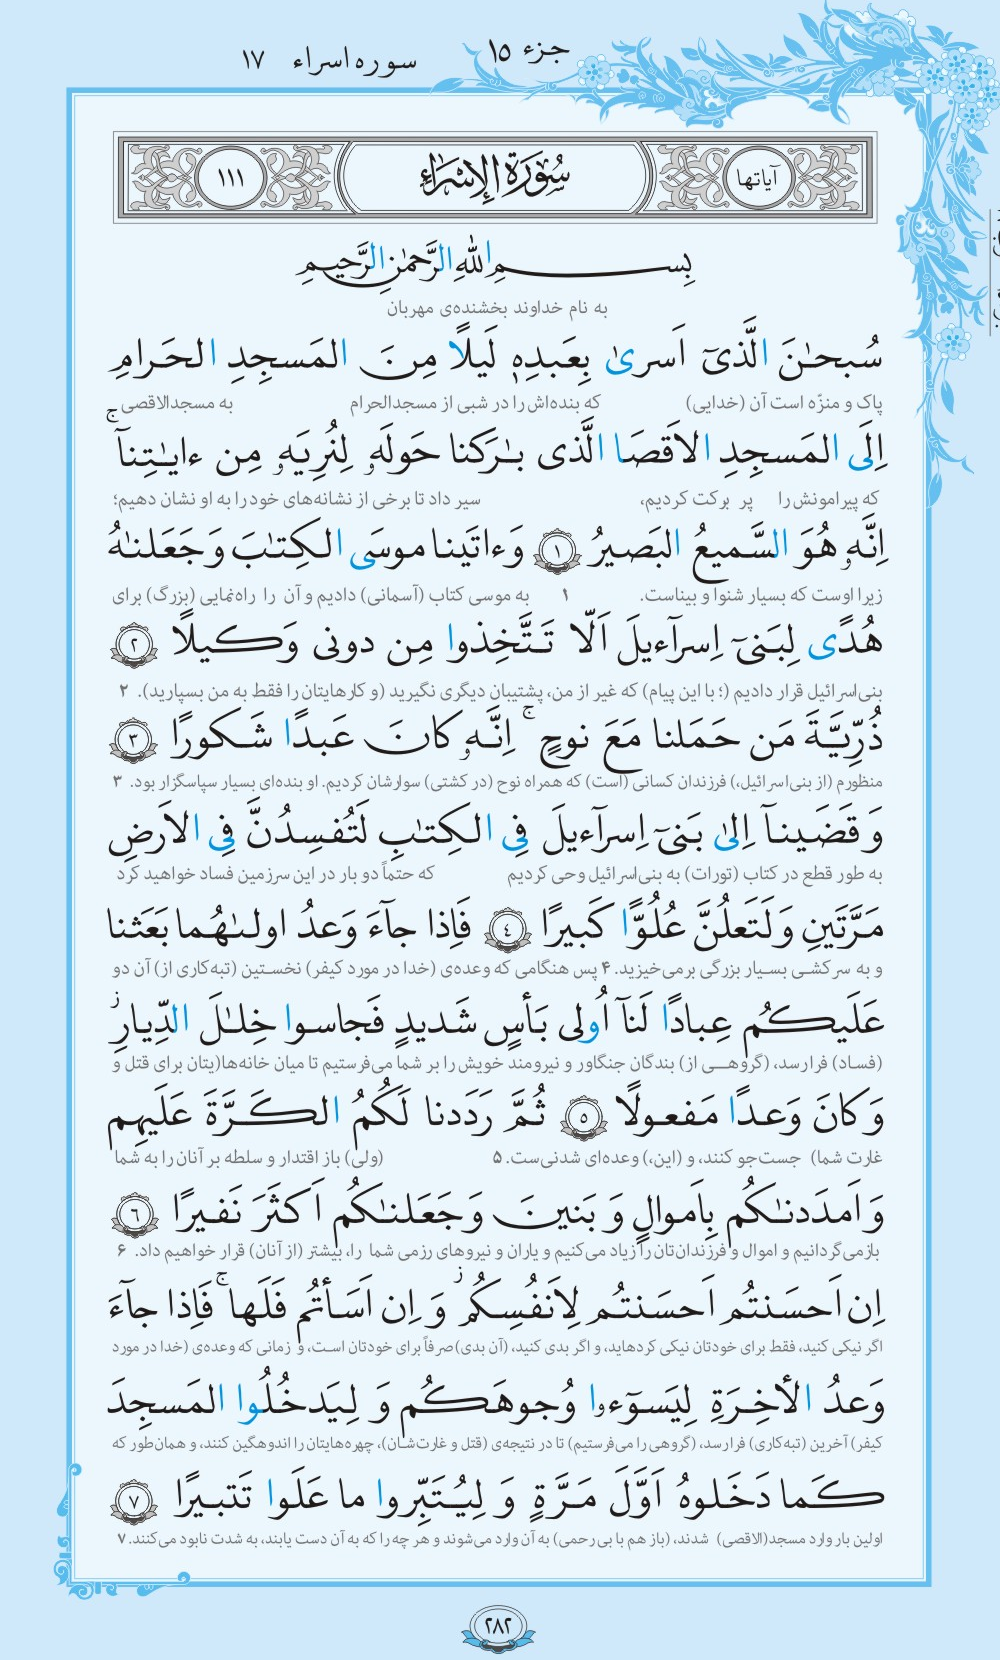 جزء ۱۵
سوره اسراء ۱۷
آیاتها
سُورَةُ الإِسْرَاءِ
۱۱۱
بِسمِ اللّٰهِ الرَّحمٰنِ الرَّحیمِ
به نام خداوند بخشنده‌ی مهربان
سُبحٰنَ الَّذیٓ اَسریٰ بِعَبدِهٖ لَیلًا مِنَ المَسجِدِ الحَرامِ
پاک و منزّه است آن (خدایی) که بنده‌اش را در شبی از مسجدالحرام به مسجدالاقصی
اِلَی المَسجِدِ الاَقصَا الَّذی بٰرَکنا حَولَهٗ لِنُرِیَهٗ مِن ءایٰتِنآ ۚ
که پیرامونش را پر برکت کردیم، سیر داد تا برخی از نشانه‌های خود را به او نشان دهیم؛
اِنَّهٗ هُوَ السَّمیعُ البَصیرُ ﴿۱﴾ وَ ءاتَینا موسَی الکِتٰبَ وَ جَعَلنٰهُ
زیرا اوست که بسیار شنوا و بیناست. ۱ به موسی کتاب (آسمانی) دادیم و آن را راه‌نمایی (بزرگ) برای
هُدًی لِبَنیٓ اِسرآءیلَ اَلّا تَتَّخِذوا مِن دونی وَکیلًا ﴿۲﴾
بنی‌اسرائیل قرار دادیم (؛ با این پیام) که غیر از من، پشتیبان دیگری نگیرید (و کارهایتان را فقط به من بسپارید). ۲
ذُرِّیَّةَ مَن حَمَلنا مَعَ نوحٍ ۚ اِنَّهٗ کانَ عَبدًا شَکورًا ﴿۳﴾
منظورم (از بنی‌اسرائیل،) فرزندان کسانی (است) که همراه نوح (در کشتی) سوارشان کردیم. او بنده‌ای بسیار سپاسگزار بود. ۳
وَ قَضَینآ اِلیٰ بَنیٓ اِسرآءیلَ فِی الکِتٰبِ لَتُفسِدُنَّ فِی الاَرضِ
به طور قطع در کتاب (تورات) به بنی‌اسرائیل وحی کردیم که حتماً دو بار در این سرزمین فساد خواهید کرد
مَرَّتَینِ وَ لَتَعلُنَّ عُلُوًّا کَبیرًا ﴿۴﴾ فَاِذا جآءَ وَعدُ اولىٰهُما بَعَثنا
و به سرکشی بسیار بزرگی برمی‌خیزید. ۴ پس هنگامی که وعده‌ی (خدا در مورد کیفر) نخستین (تبه‌کاری از) آن دو
عَلَیکُم عِبادًا لَنآ اُولی بَأسٍ شَدیدٍ فَجاسوا خِلٰلَ الدِّیارِ ۚ
(فساد) فرارسد، (گروهی از) بندگان جنگاور و نیرومند خویش را بر شما می‌فرستیم تا میان خانه‌ها(یتان برای قتل و
وَ کانَ وَعدًا مَفعولًا ﴿۵﴾ ثُمَّ رَدَدنا لَکُمُ الکَرَّةَ عَلَیهِم
غارت شما) جست‌جو کنند، و (این،) وعده‌ای شدنی‌ست. ۵ (ولی) باز اقتدار و سلطه بر آنان را به شما
وَ اَمدَدنٰکُم بِاَموالٍ وَ بَنینَ وَ جَعَلنٰکُم اَکثَرَ نَفیرًا ﴿۶﴾
بازمی‌گردانیم و اموال و فرزندان‌تان را زیاد می‌کنیم و یاران و نیروهای رزمی شما را، بیشتر (از آنان) قرار خواهیم داد. ۶
اِن اَحسَنتُم اَحسَنتُم لِاَنفُسِکُم وَ اِن اَسَأتُم فَلَها ۚ فَاِذا جآءَ
اگر نیکی کنید، فقط برای خودتان نیکی کرده‌اید، و اگر بدی کنید، (آن بدی) صرفاً برای خودتان است، و زمانی که وعده‌ی (خدا در مورد
وَعدُ الأخِرَةِ لِیَسوٓءوا وُجوهَکُم وَ لِیَدخُلُوا المَسجِدَ
کیفر) آخرین (تبه‌کاری) فرارسد، (گروهی را می‌فرستیم) تا در نتیجه‌ی (قتل و غارت‌شان)، چهره‌هایتان را اندوهگین کنند، و همان‌طور که
کَما دَخَلوهُ اَوَّلَ مَرَّةٍ وَ لِیُتَبِّروا ما عَلَوا تَتبیرًا ﴿۷﴾
اولین بار وارد مسجد(الاقصی) شدند، (باز هم با بی‌رحمی) به آن وارد می‌شوند و هر چه را که به آن دست یابند، به شدت نابود می‌کنند. ۷
۲۸۲